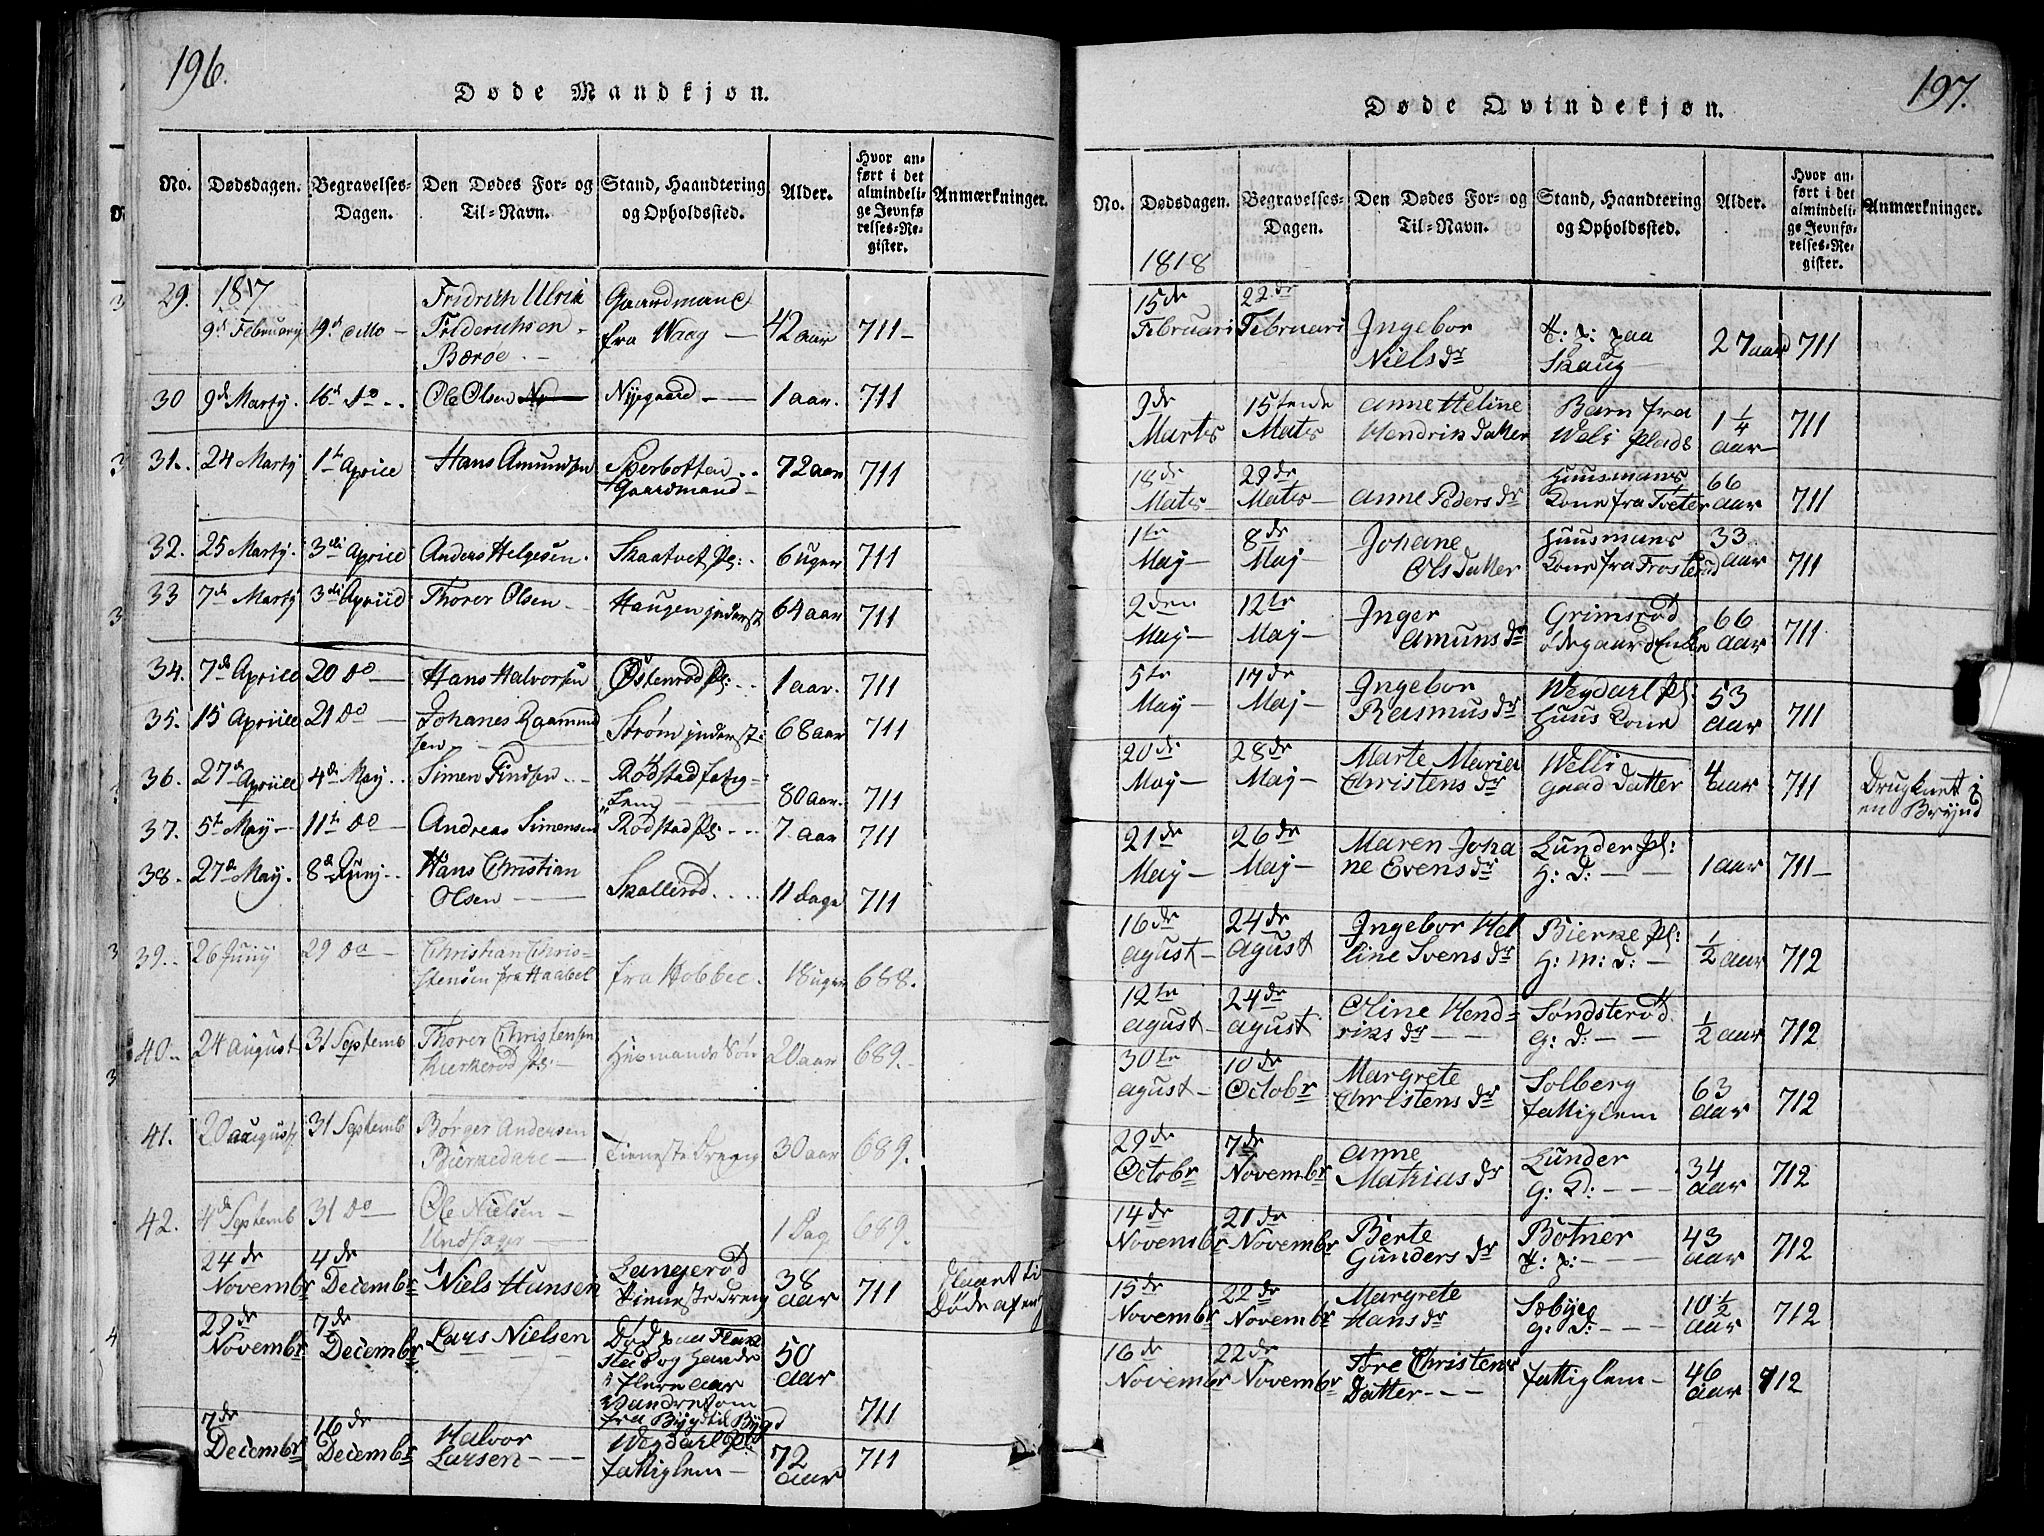 196.
Døde Mandkjøn.
No. Dødsdagen. Begravelses-Dagen. Den Dødes For- og Til-Navn. Stand, Haandtering og Opholdssted. Alder. Hvor anført i det almindelige Jevnførelses-Register. Anmærkninger.
29. 1817
9d February 9d dito — Fridrich Ulrik Friderichsen Barøe. — Gaardmand fra Waag — 42 aar 711 —
30 9d Martÿ. 16d do — Ole Olsen Nijegaard — 1 aar. 711
31. 24 Martÿ 1t Aprice Hans Amundsen Gaardmand — 72 aar 711
32. 25 Martÿ. 3di Aprice Anders Helgesen. Skaatvet Pl: . 6 uger 711
33 7de Martÿ 3di Apriid Thorer Olsen — Haugen inderst 64 aar 711
34. 7de Aprice 20 do — Hans Halvorsen Østenrød Pl: 1 aar. 711
35. 15 Apriice 21 do — Johanes Raammundsen — Strøm inderst: 68 aar 711
36. 27d Apriice 4de Maÿ. Simen Findsen — Rødstad — 80 aar. 711
37. 5t Maÿ — 11t do — Andreas Simensen Rødstad Pl: 7. aar 711
38. 27d Maÿ. 8d Junj. Hans Christian Olsen — Skallerød. 11 dage 711
39. 26 Junij 29 do — Christian Christensen fra Haabel fra Hobbel. 18 uger 688.
40. 24 august 31 Septemb Thorer Christensen Kierkerød Pl: — Husmands Søn 20 aar 689.
41. 20 august 31 Septemb Børger Andersen Bierkedare — Tieneste Dreng 30 aar 689.
42. 4d Septemb 31 do — Ole Nielsen — 1 dag 689.
24de Novembr 4de Decembr Niels Hansen Langerød tieneste dreng 38 aar 711
29de Novembr 7de Decembr Lars Nielsen Død paa og flere aar Vandret om fra Bÿgd til Bÿgd 50 aar 711
7de Decembr 16de Decembr Halvor Larsen — Wegdarl Pl: fattiglem — 72 aar 711
197.
Døde Qvindekjøn.
No. Dødsdagen. Begravelses-Dagen. Den Dødes For- og Til-Navn. Stand, Haandtering og Opholdssted. Alder. Hvor anført i det almindelige Jevnførelses-Register. Anmærkninger.
1818
15de Februari 22de Februari Ingebor Nielsdr paa Skaug — 27 aar 711
9de Marts 15tende Mats Anne Heline Hendrikdatter Barn fra Weli plads 1 1/4 aar — 711
18de Mats — 29de Mats — Anne Pedersdr Huusmans Kone fra Tveter 66 aar 711
1te Maj — 8de Maj — Johane Olsdatter Huusmans Kone fra Frosterud 33 aar 711
2den Maj — 12te Maj — Inger Amunsdr Grimsrød ødegaard Enke 66 aar 711
5te Maj — 17de Maj — Ingebor Rasmusdr Wegdarl Pl: Huus Kone 53 aar 711
20de Maj — 28de Maj — Marte Maria Christensdr Welli — gaad datter 4 aar 711 Drugknet i en Brÿnd
21de Maj — 26de Maj — Maren Johane Evensdr Lunder Pl: H: D: — 1 aar 711 —
16de agust — 24de agust Ingebor Helline Svensdr Bierke Pl: H: m: d: — 1/2 aar 712
12te agust — 24de agust Oline Hendriksdr — Søndsterød G: d: — 1/2 aar 712
30te agust — 10de Octobr Margrete Christensdr Solberg fattiglem 63 aar 712
29de Octobr 7de Novembr Anne Mathiasdr Lunder G: D: — 34 aar 712
14de Novembr 21de Novembr Berte Gundersdr Botner — 43 aar 712
15de Novembr 22de Novembr Margrete Hansdr Sæbyeg G: D: — 10 1/2 aar 712
16de Novembr 22de Novembr Tore Christens Datter — fattiglem — 46 aar 712